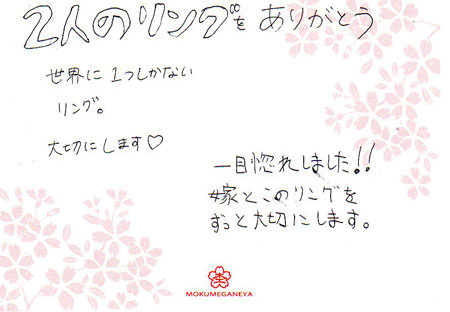 2人のリングを ありがとう
世界に 1つしかない
リング。
大切にします♡
一目惚れしました!!
嫁とこのリングを
ずっと大切にします。
MOKUMEGANEYA